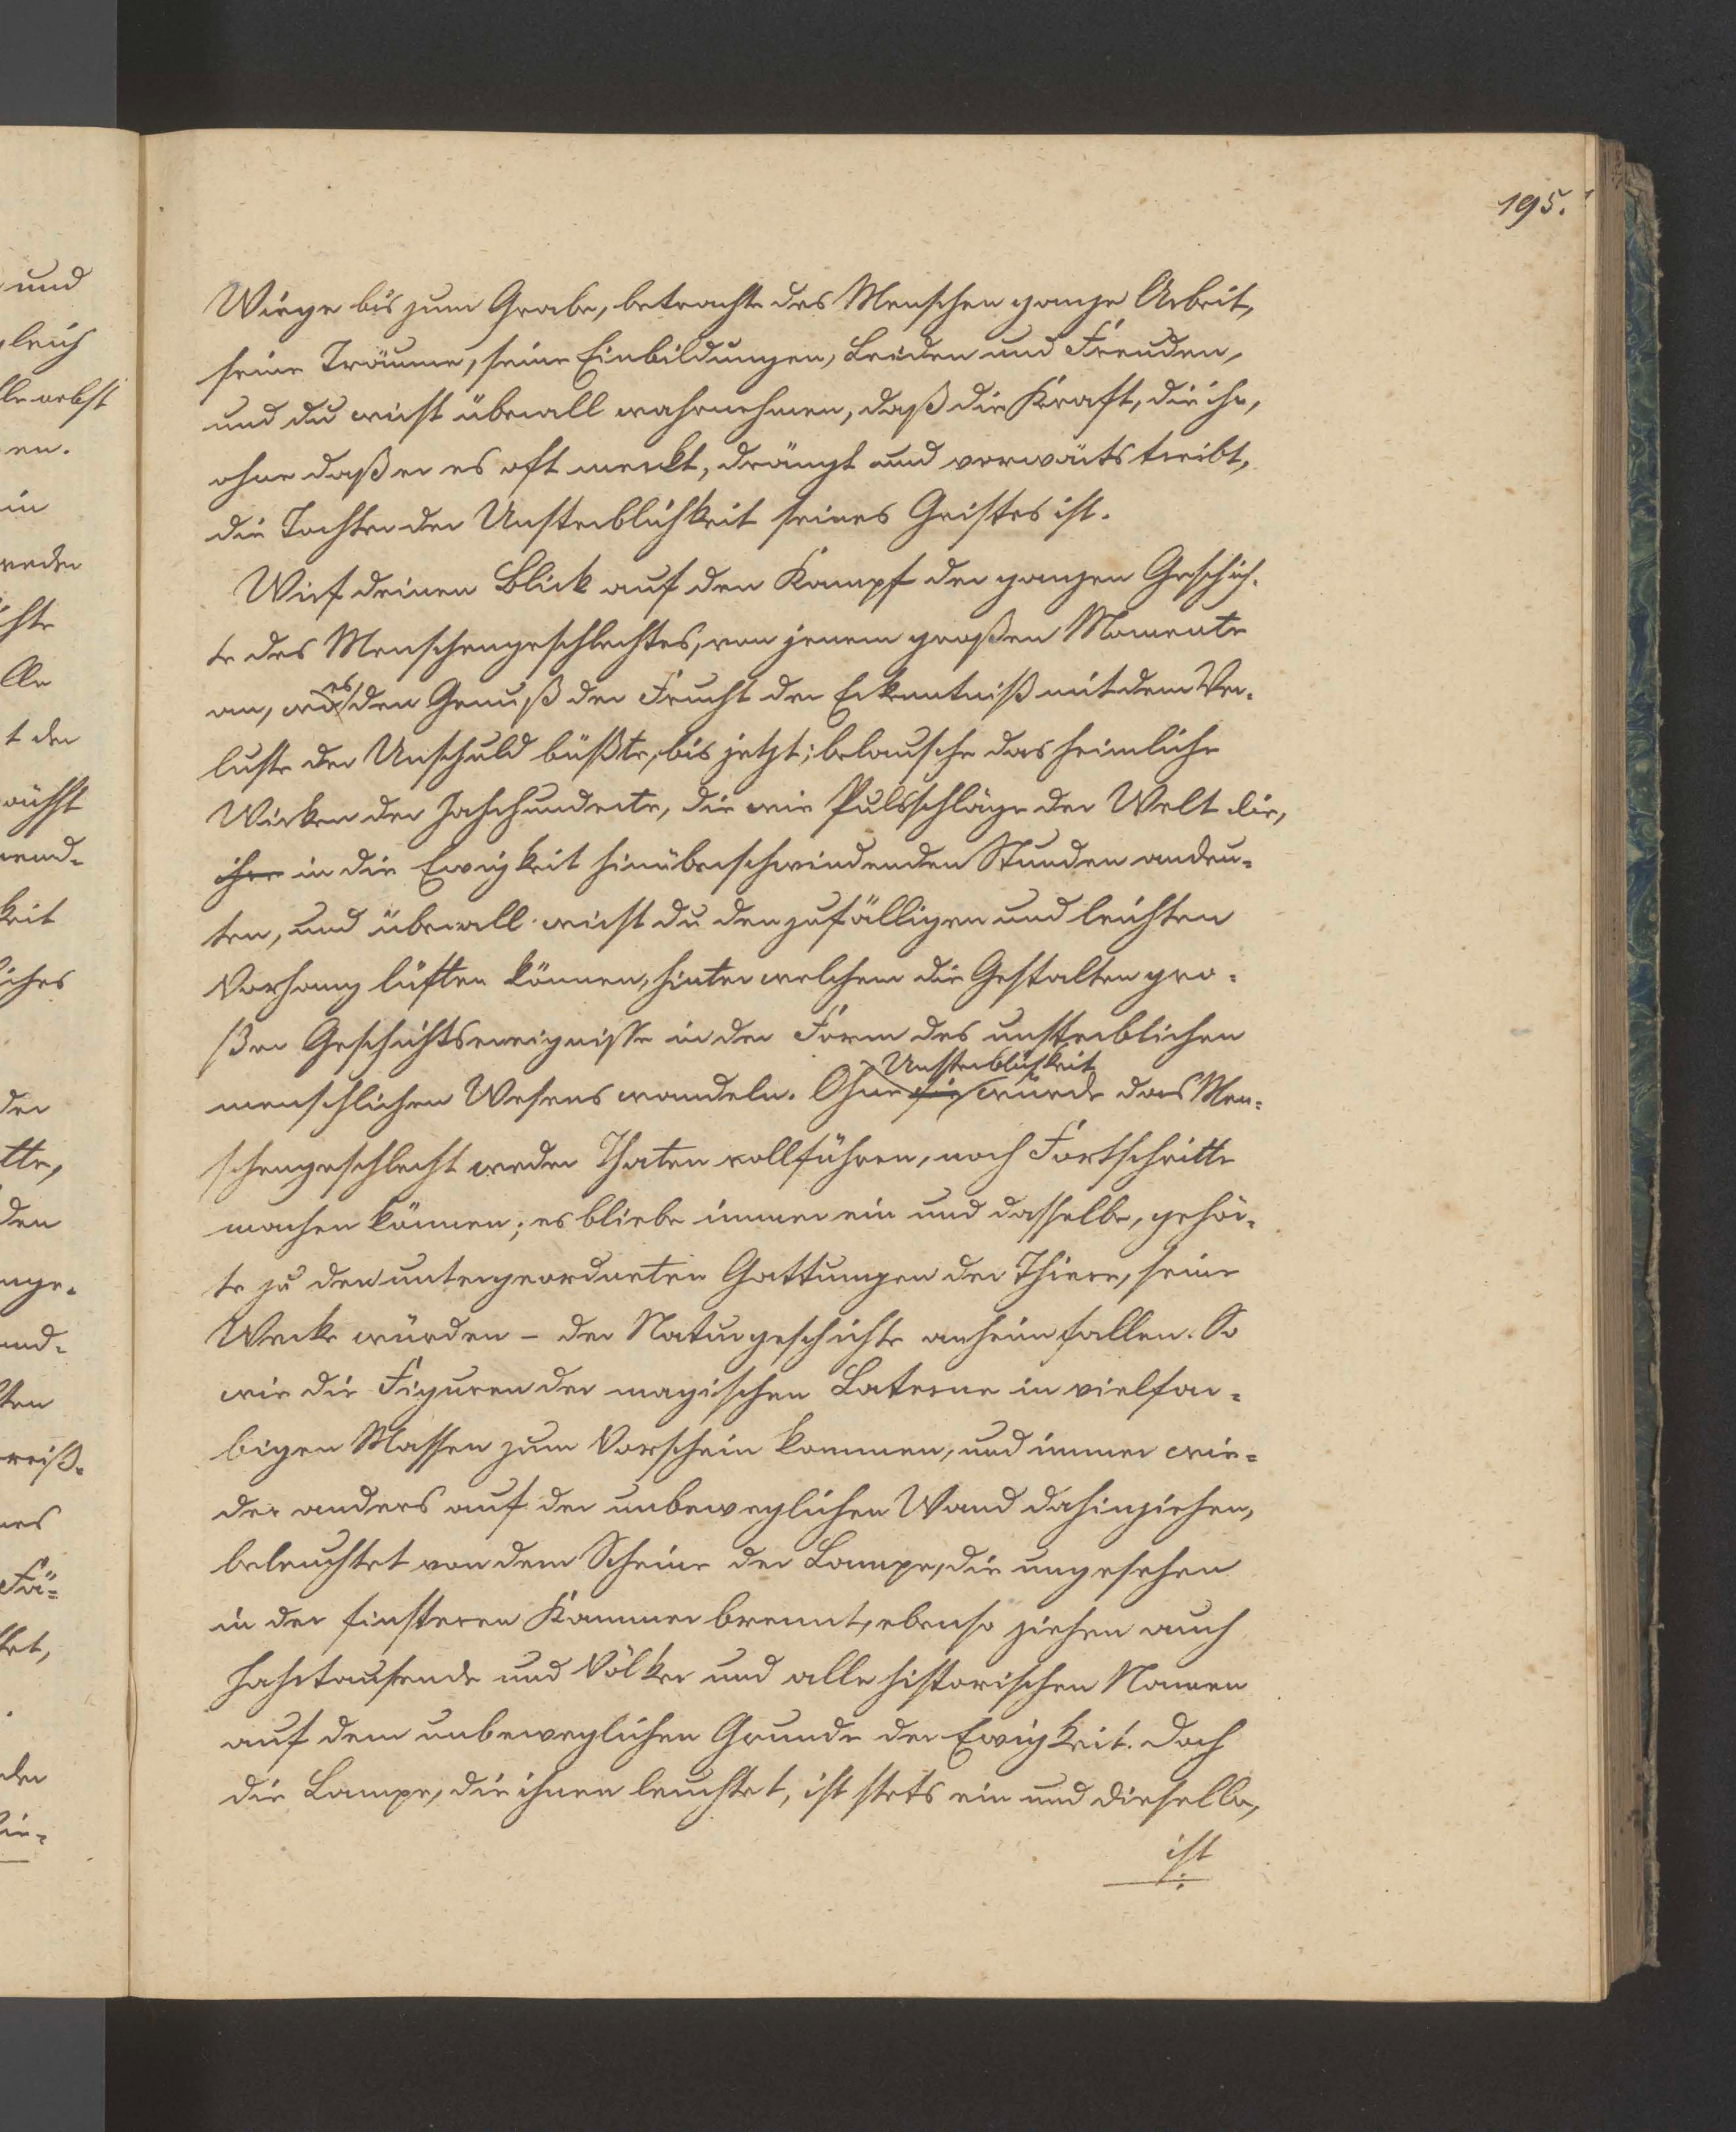 195.
Wiege bis zum Grabe, betrachte des Menschen ganze Arbeit,
seine Träume, seine Einbildungen, Leiden und Freuden,
und du wirst überall wahrnehmen, daß die Kraft, die ihn,
ohne daß er es oft merkt, drängt und vorwärts treibt,
die Tochter der Unsterblichkeit seines Geistes ist.
Wirf deinen Blick auf den Kampf der ganzen Geschich-
te des Menschengeschlechtes, von jenem großen Momente
an, wo es den Genuß der Frucht der Erkenntniß mit dem Ver-
luste der Unschuld büßte, bis jetzt; belausche das heimliche
Wirken der Jahrhunderte, die wie Pulsschläge der Welt die,
ihre in die Ewigkeit hinüberschwindenden Stunden andeu-
ten, und überall wirst du den zufälligen und leichten
Vorhang lüften können, hinter welchem die Gestalten gro-
ßer Geschichtsereignisse in der Form des unsterblichen
menschlichen Wesens wandeln. Ohne sie Unsterblichkeit würde das Men-
schengeschlecht weder Thaten vollführen, noch Fortschritte
machen können; es bliebe immer ein und dasselbe, gehör-
te zu den untergeordneten Gattungen der Thiere, seine
Werke würden – der Naturgeschichte anheimfallen. So
wie die Figuren der magischen Laterne in vielfar-
bigen Massen zum Vorschein kommen, und immer wie-
der anders auf der unbeweglichen Wand dahinziehen,
beleuchtet von dem Scheine der Lampe, die ungesehen
in der finsteren Kammer brennt, ebenso ziehen auch
Jahrtausende und Völker und alle historischen Namen
auf dem unbeweglichen Grunde der Ewigkeit. Doch
die Lampe, die ihnen leuchtet, ist stets ein und dieselbe,
ist